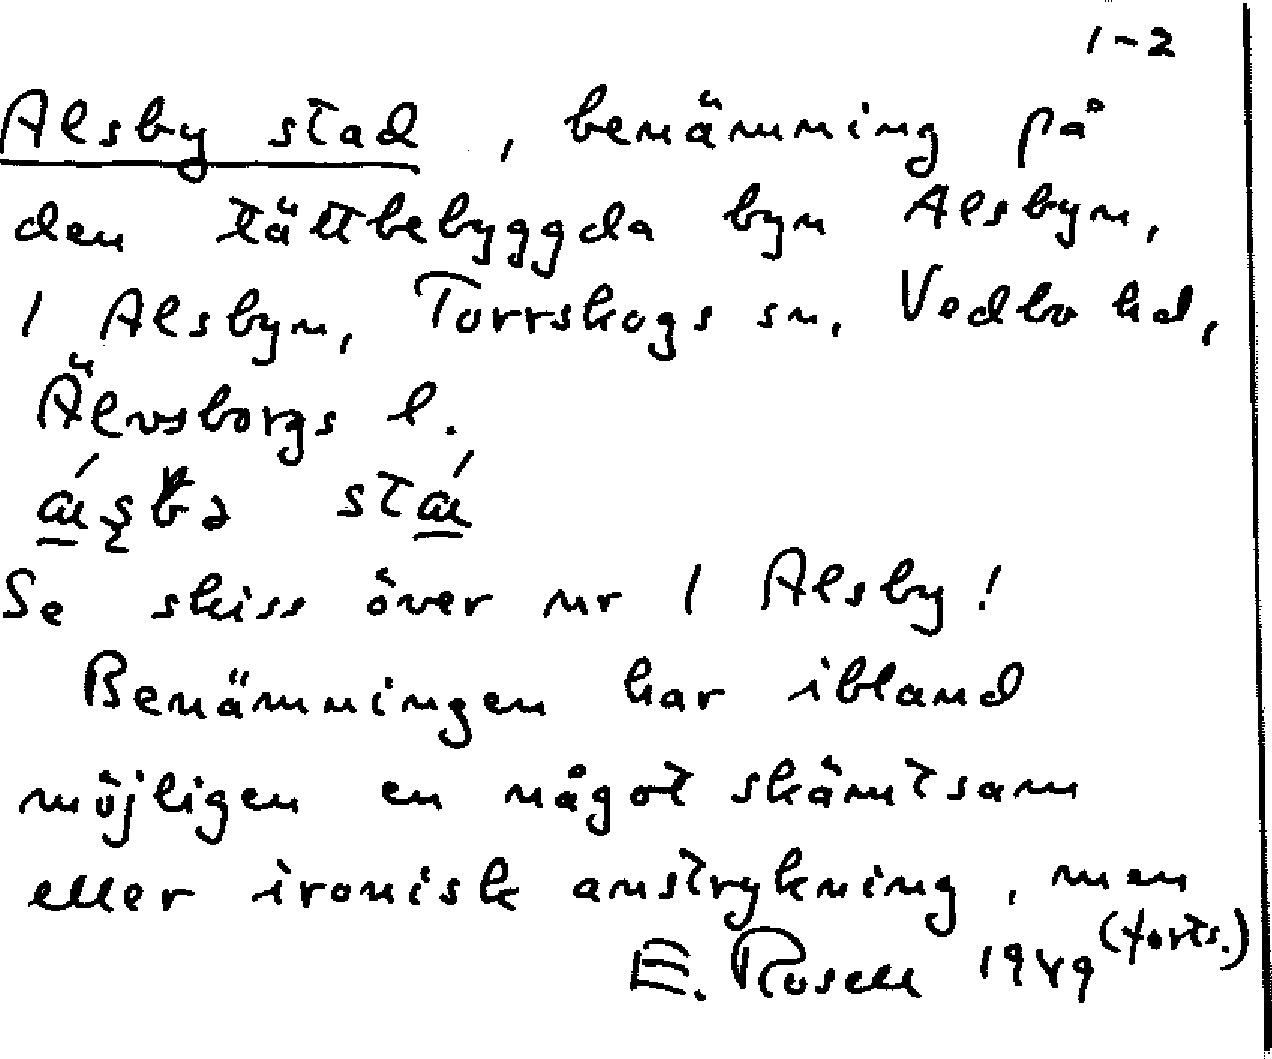 1-2
Alsby stad, benämning på
den tättbebyggda byn Alsbyn,
1 Alsbyn, Torrskogs sn, Vedbo hd,
Älvsborgs l.
Se skiss över nr 1 Alsby!
Benämningen har ibland
möjligen en något skämtsam
eller ironisk anstrykning, men
E. Rosell 1949 (forts.)